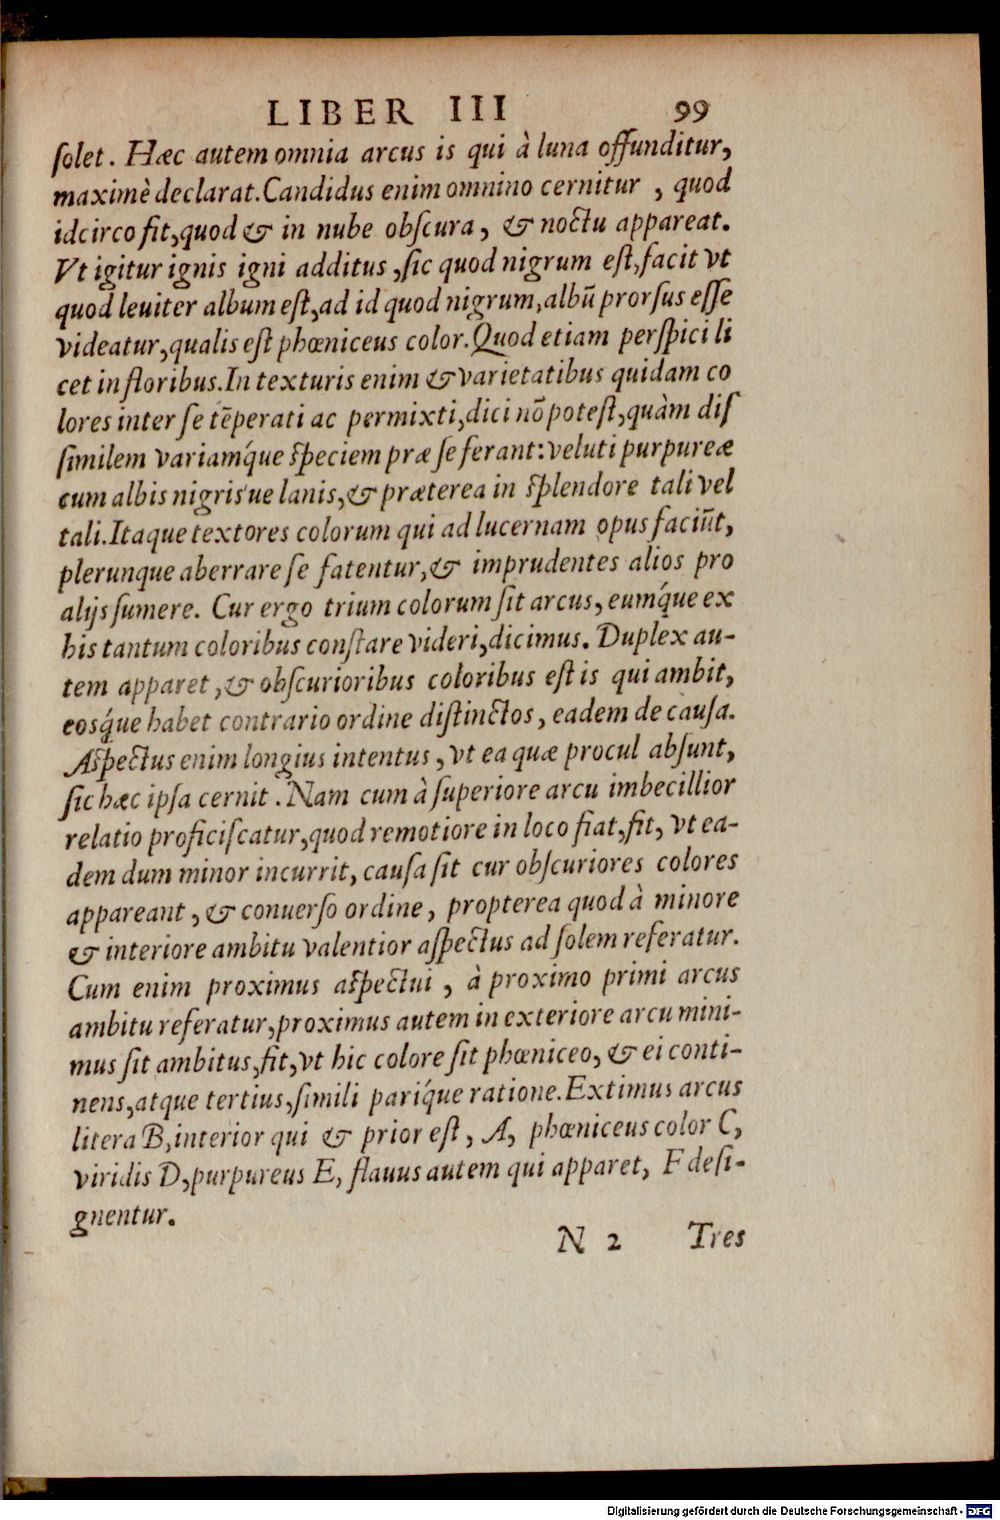 LIBER III 99
ſolet. Hæc autem omnia arcus is qui à luna offunditur,
maximè declarat. Candidus enim omnino cernitur , quod
idcirco fit, quod & in nube obſcura, & noctu appareat.
Vt igitur ignis igni additus, ſic quod nigrum eſt, facit vt
quod leuiter album eſt, ad id quod nigrum, albũ prorſus eſſe
videatur, qualis eſt phœniceus color. Quod etiam perſpici li
cet in floribus. In texturis enim & varietatibus quidam co
lores inter ſe tẽperati ac permixti, dici nõ poteſt, quàm diſ
ſimilem variamq́ue ſpeciem præ ſe ferant: veluti purpureæ
cum albis nigris'ue lanis, & præterea in ſplendore tali vel
tali. Itaque textores colorum qui ad lucernam opus faciũt,
plerunque aberrare ſe fatentur, & imprudentes alios pro
alijs ſumere. Cur ergo trium colorum ſit arcus, eumq́ue ex
his tantum coloribus conſtare videri, dicimus. Duplex au-
tem apparet, & obſcurioribus coloribus eſt is qui ambit,
eosq́ue habet contrario ordine diſtinctos, eadem de cauſa.
Aſpectus enim longius intentus, vt ea quæ procul abſunt,
ſic hæc ipſa cernit. Nam cum à ſuperiore arcu imbecillior
relatio proficiſcatur, quod remotiore in loco fiat, fit, vt ea-
dem dum minor incurrit, cauſa ſit cur obſcuriores colores
appareant, & conuerſo ordine, propterea quod à minore
& interiore ambitu valentior aſpectus ad ſolem referatur.
Cum enim proximus aſpectui, à proximo primi arcus
ambitu referatur, proximus autem in exteriore arcu mini-
mus ſit ambitus, fit, vt hic colore ſit phœniceo, & ei conti-
nens, atque tertius, ſimili pariq́ue ratione. Extimus arcus
litera B, interior qui & prior eſt, A, phœniceus color C,
viridis D, purpureus E, flauus autem qui apparet, F deſi-
gnentur.
N 2 Tres
Digitalisierung gefördert durch die Deutsche Forschungsgemeinschaft - DFG